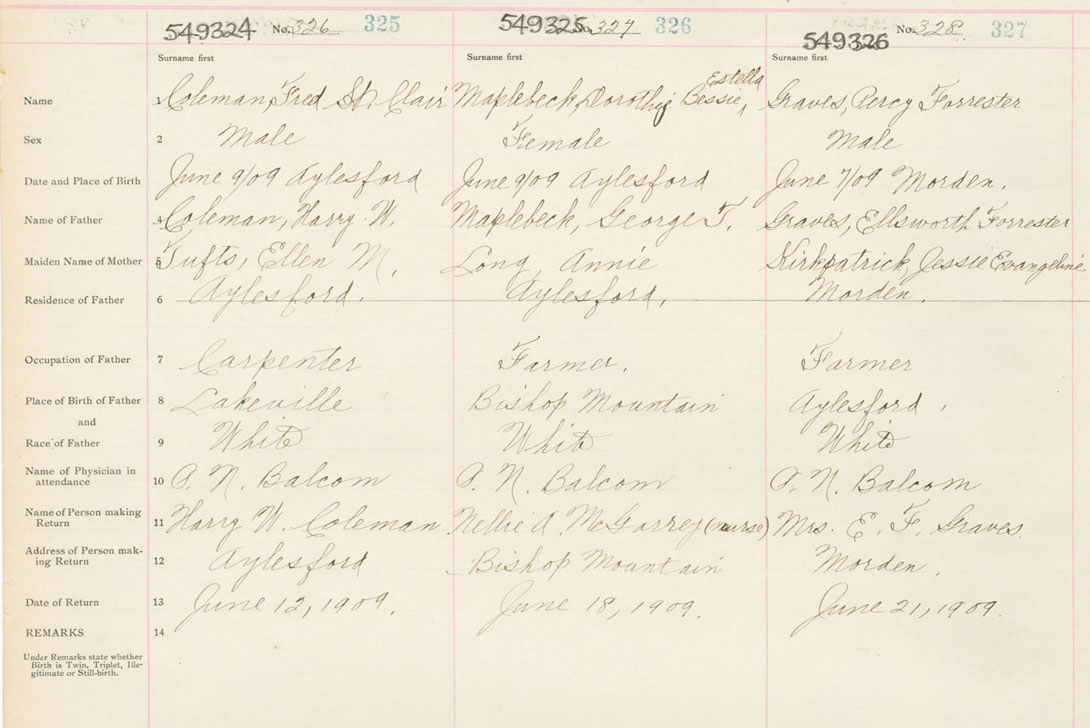 549324 No. 326 325 549325 No. 327 326 549326 No. 328 327
Surname first Surname first Surname first
Name 1 Coleman, Fred St. Clair Maplebeck, Dorothy Bessie, Estella Graves, Percy Forrester
Sex 2 Male Female Male
Date and Place of Birth June 9/09 Aylesford June 9/09 Aylesford June 7/09 Morden.
Name of Father 4 Coleman, Harry W. Maplebeck, George T. Graves, Ellsworth Forrester
Maiden Name of Mother 5 Tufts, Ellen M. Long, Annie Kirkpatrick, Jessie Evangeline
Residence of Father 6 Aylesford. Aylesford, Morden.
Occupation of Father 7 Carpenter Farmer. Farmer
Place of Birth of Father 8 Lakeville Bishop Mountain Aylesford,
and
Race of Father 9 White White White
Name of Physician in
attendance 10 P. N. Balcom P. N. Balcom P. N. Balcom
Name of Person making
Return 11 Harry W. Coleman Nellie A. McGarrey (nurse) Mrs. E. F. Graves.
Address of Person mak-
ing Return 12 Aylesford Bishop Mountain Morden.
Date of Return 13 June 12, 1909. June 18, 1909. June 21, 1909.
REMARKS 14
Under Remarks state whether
Birth is Twin, Triplet, Ille-
gitimate or Still-birth.